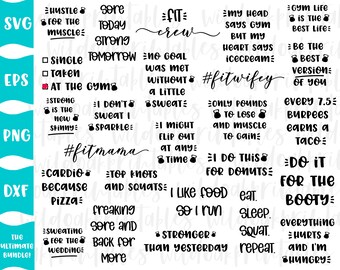 SVG
EPS
PNG
DXF
THE
ULTIMATE
BUNDLE!
HUSTLE
FOR THE
MUSCLE
SINGLE
TAKEN
AT THE GYM
STRONG
IS THE
NEW
SKINNY
#fitmama
CARDIO
BECAUSE
PIZZA
SWEATING
FOR THE
WEDDING
SORE
TODAY
STRONG
TOMORROW
I DON'T
SWEAT I
SPARKLE
TOP KNOTS
AND SQUATS
FREAKING
SORE AND
BACK FOR
MORE
FIT
crew
NO GOAL
WAS MET
WITHOUT
A LITTLE
SWEAT
I MIGHT
FLIP OUT
AT ANY
TIME
I LIKE FOOD
SO I RUN
STRONGER
THAN YESTERDAY
MY HEAD
SAYS GYM
BUT MY
HEART SAYS
ICECREAM
#fitwifey
ONLY POUNDS
TO LOSE
AND MUSCLE
TO GAIN
I DO THIS
FOR DONUTS
EAT.
SLEEP.
SQUAT.
REPEAT.
GYM LIFE
IS THE
BEST LIFE
BE THE
BEST
VERSION
OF YOU
EVERY 7.5
BURPEES
EARNS A
TACO
DO IT
FOR THE
BOOTY
EVERYTHING
HURTS
AND I'M
HUNGRY